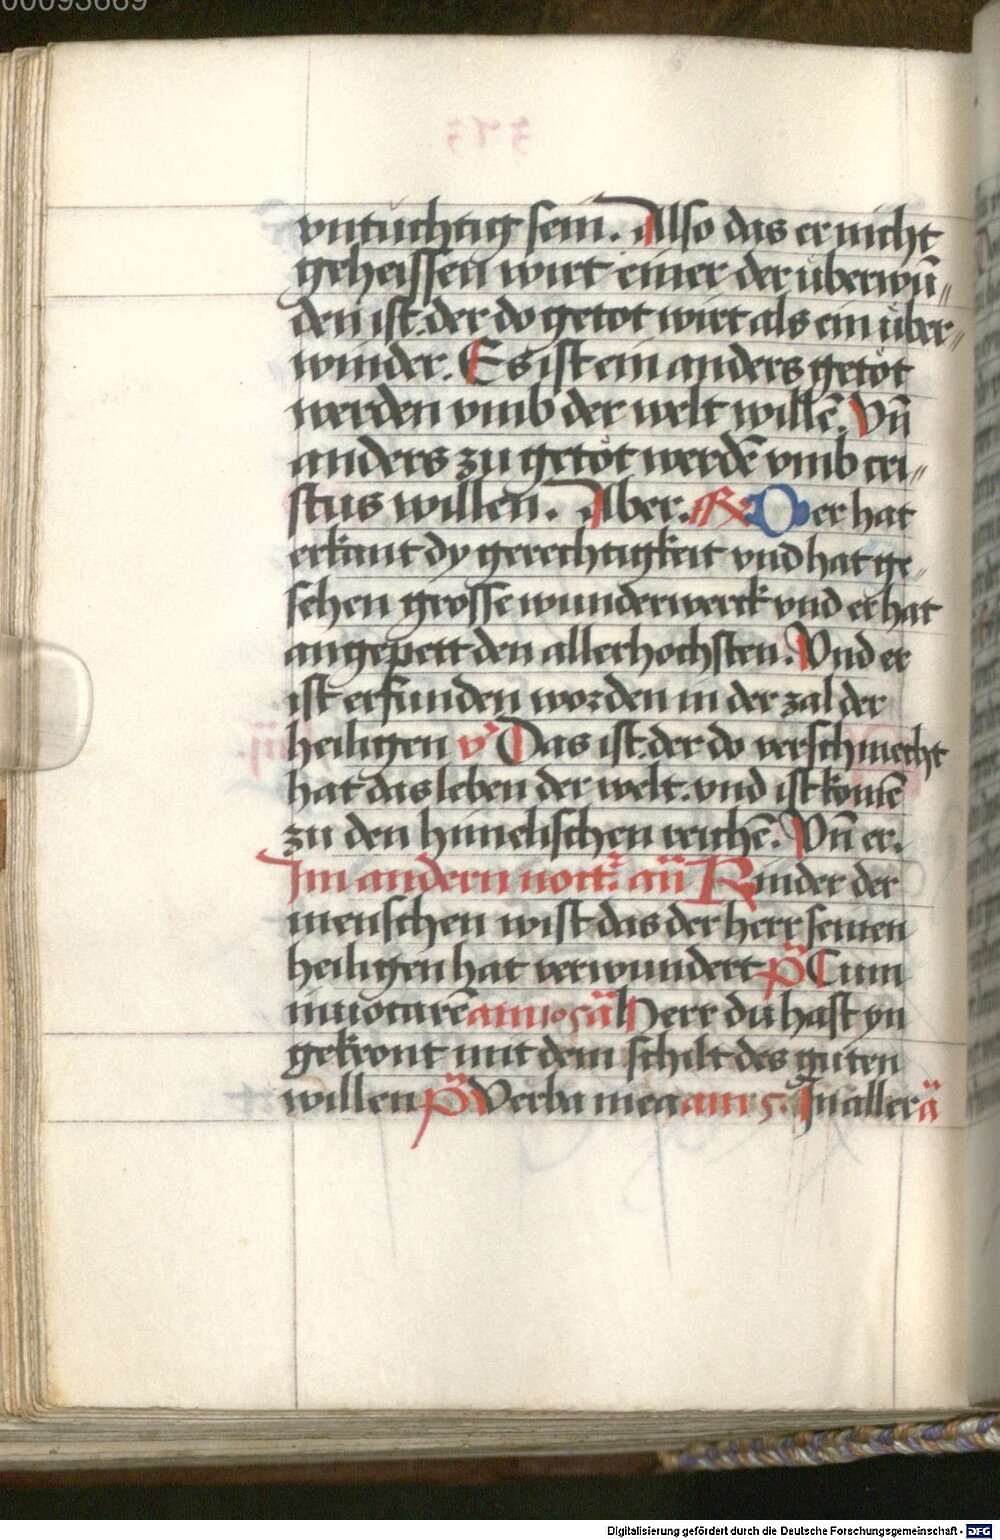 00093669
vntuchtig sein. Also das er nicht
geheissen wirt einer der überwū„
den ist. der do getot wirt als ein über„
winder. Es ist ein anders getöt
werden vmb der welt willē. Vn̄
anders zu getöt werdē vmb cri„
stus willen. Aber. R Der hat
erkant dy gerechtigkeit vnd hat ge„
sehen grosse wunderwerck vnd er hat
angepett den allerhochsten. Vnd er
ist erfunden worden in der zal der
heiligen v Das ist. der do verschmecht
hat das leben der welt. vnd ist komē
zu den himelischen reichē. Vn̄ er.
Im andern nott: an̄ Kinder der
menschen wist das der herr seinen
heiligen hat verwundert p̄s Cum
inuocarē am 105 ā Herr du hast yn
gekront mit dem schilt des guten
willen p̄s Verba mea am 5. In aller ā
Digitalisierung gefördert durch die Deutsche Forschungsgemeinschaft - DFG